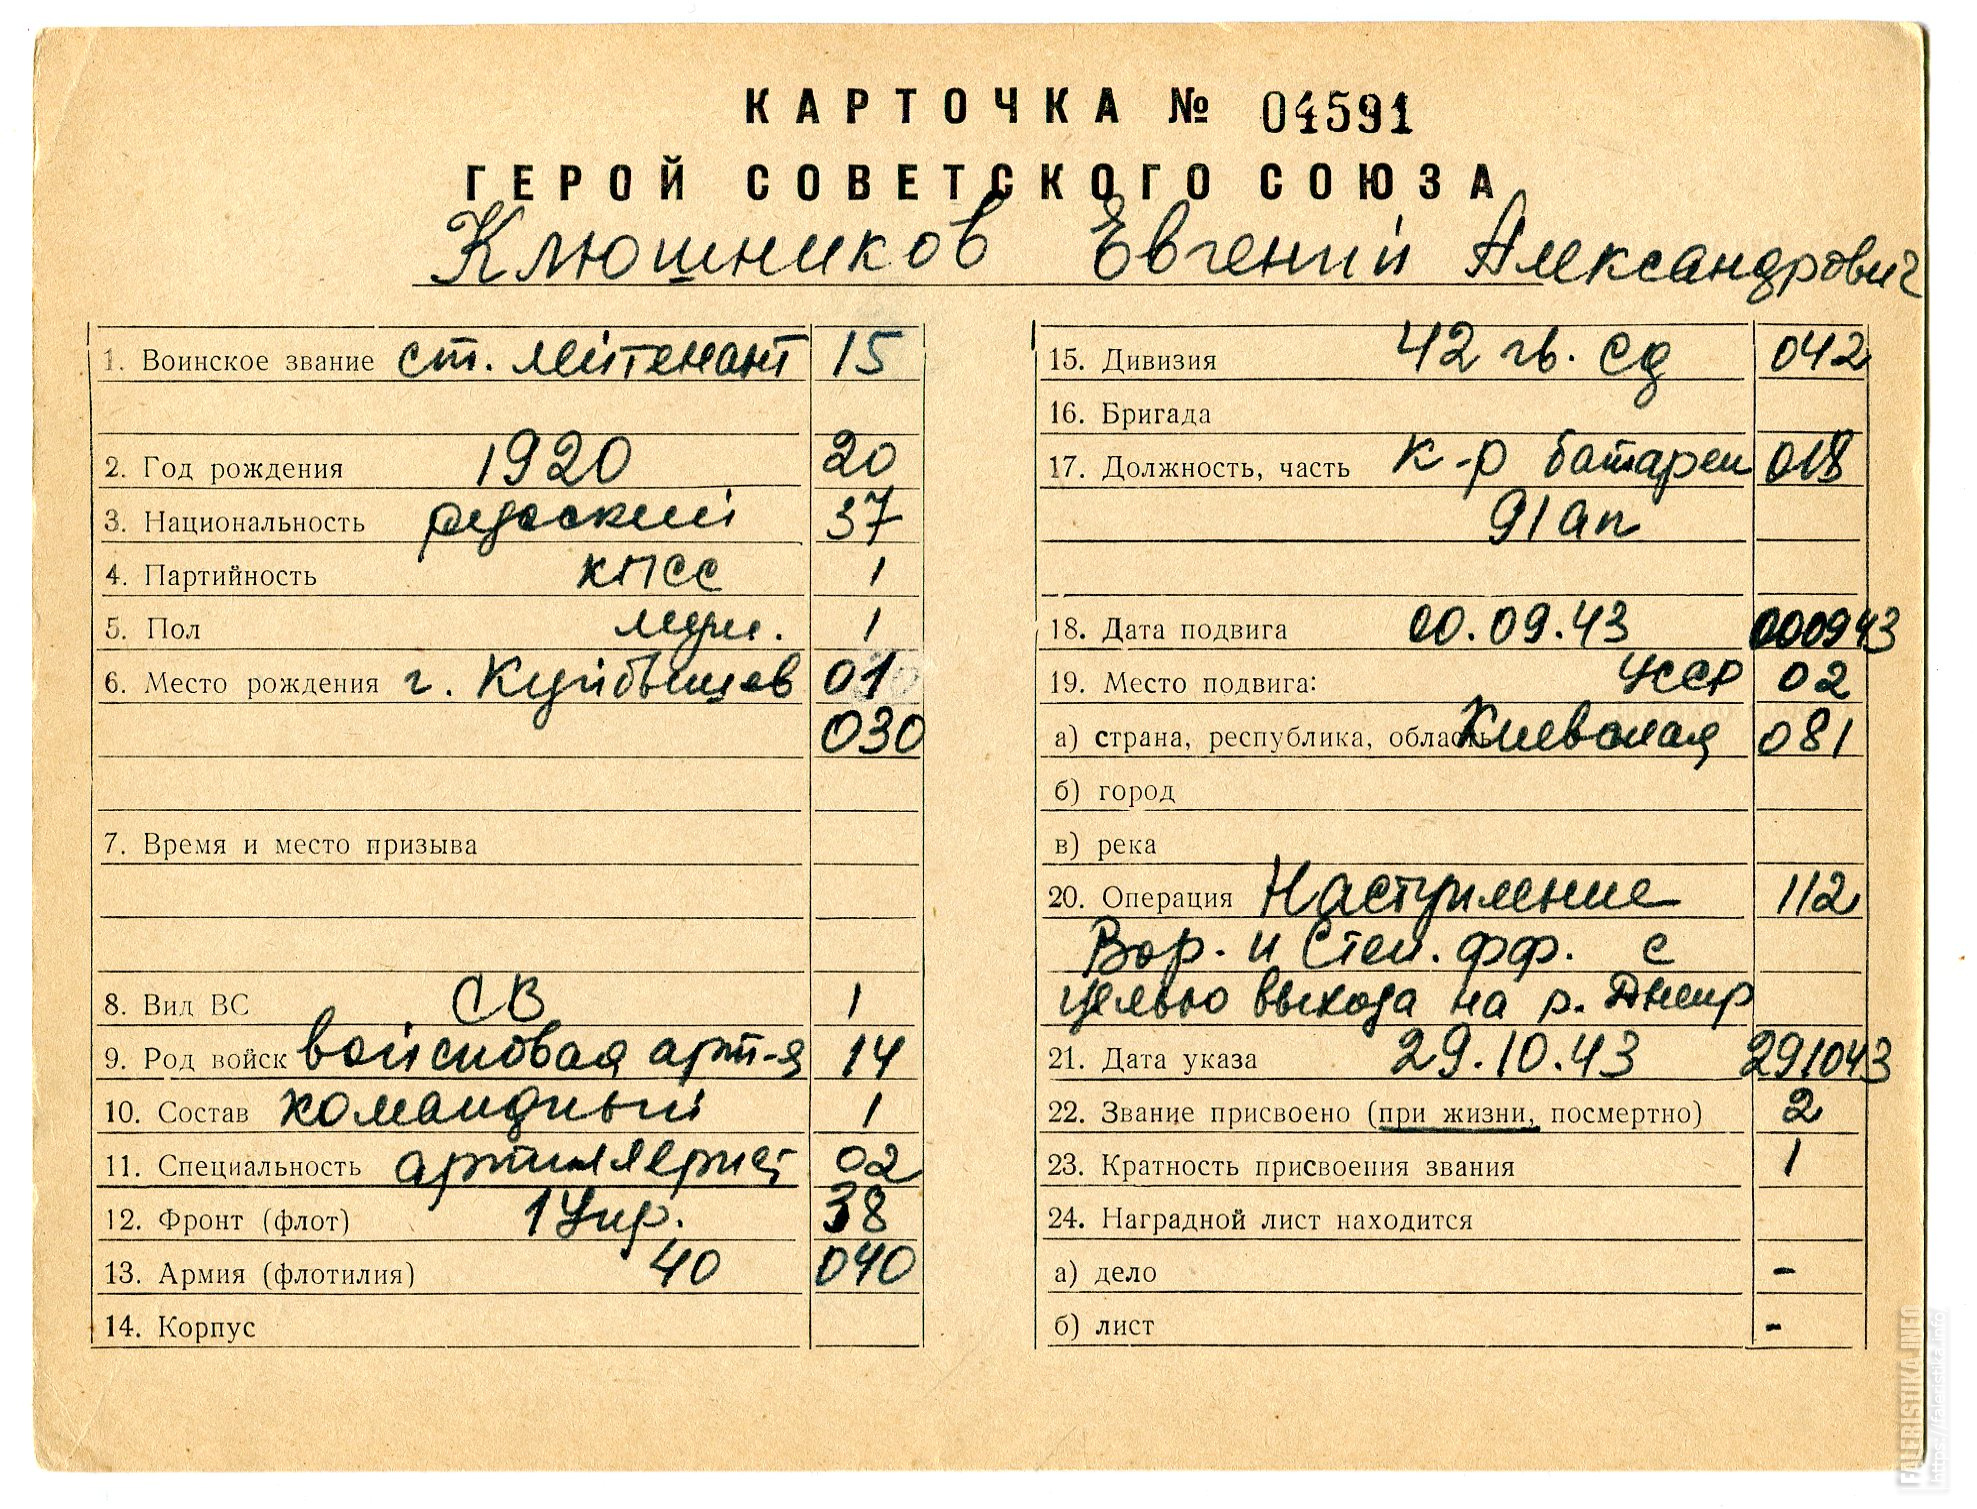 КАРТОЧКА № 04591
ГЕРОЙ СОВЕТСКОГО СОЮЗА
Клюшников Евгений Александрович
1. Воинское звание ст. лейтенант 15
2. Год рождения 1920 20
3. Национальность русский 37
4. Партийность КПСС 1
5. Пол муж. 1
6. Место рождения г. Куйбышев 01
030
7. Время и место призыва
8. Вид ВС СВ 1
9. Род войск войсковая арт-я 14
10. Состав командный 1
11. Специальность артиллерист 02
12. Фронт (флот) 1 Укр. 38
13. Армия (флотилия) 40 040
14. Корпус
15. Дивизия 42 гв. сд 042
16. Бригада
17. Должность, часть к-р батареи 018
91 ап
18. Дата подвига 00.09.43 000943
19. Место подвига: УССР 02
а) страна, республика, область Киевская 081
б) город
в) река
20. Операция Наступление 112
Вор. и Степ. фф. с
целью выхода на р. Днепр
21. Дата указа 29.10.43 291043
22. Звание присвоено (при жизни, посмертно) 2
23. Кратность присвоения звания 1
24. Наградной лист находится
а) дело -
б) лист -
FALERISTIKA.INFO
https://faleristika.info